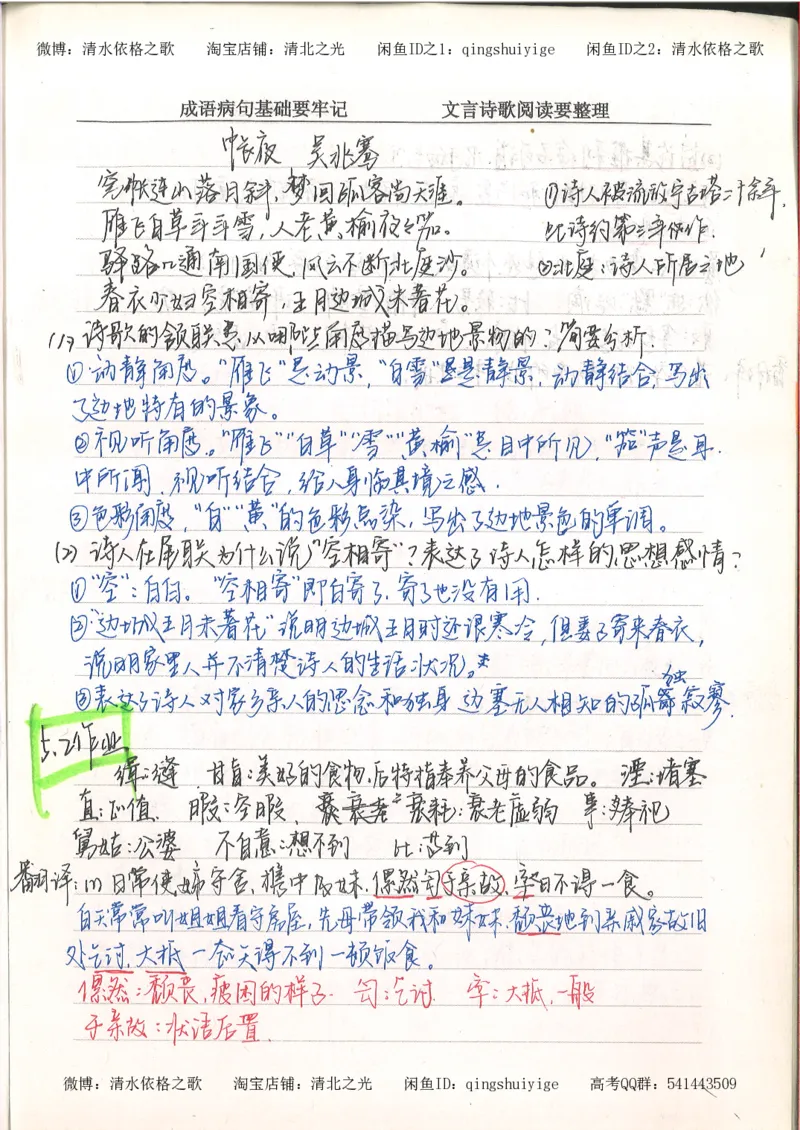 微博：清水依格之歌 淘宝店铺：清北之光 闲鱼ID之1：qingshuiyige 闲鱼ID之2：清水依格之歌
成语病句基础要牢记 文言诗歌阅读要整理
帐夜 吴兆骞
穹帐连山落月斜，梦回孤客尚天涯。 ①诗人被流放宁古塔二十余年，
雁飞白草年年雪，人老黄榆夜夜笳。 此诗约第三年所作.
驿路几通南国使，风云不断北庭沙。 ②北庭：诗人所居之地
春衣少妇空相寄，五月边城未著花。
(1) 诗歌的颔联是从哪些角度描写边地景物的？简要分析
①动静角度。“雁飞”是动景，“白雪”是静景，动静结合，写出
了边地特有的景象。
②视听角度。“雁飞”“白草”“雪”“黄榆”是目中所见，“笳”声是耳
中所闻，视听结合，给人身临其境之感.
③色彩角度，“白”“黄”的色彩点染，写出了边地景色的单调。
(2) 诗人在尾联为什么说“空相寄”？表达了诗人怎样的思想感情？
①“空”：白白。“空相寄”即白寄了，寄了也没有用.
②“边城五月未著花”说明边城五月时还很寒冷，但妻子寄来春衣，
说明家里人并不清楚诗人的生活状况。
③表达了诗人对家乡亲人的思念和独身边塞无人相知的孤独寂寥.
5.2作业
缉：缝 甘旨：美好的食物，后特指奉养父母的食品。 湮：堵塞
直：值 暇：空暇， 衰耗：衰老虚弱 事：侍祀
舅姑：公婆 不自意：想不到 比：等到
翻译：(1) 日常使姊守舍，携中及妹，傫然匄于亲故，率日不得一食。
白天常常叫姐姐看守房屋，先母带领我和妹妹，颓丧地到亲戚家故旧
处乞讨，大抵一天得不到一顿饭食。
傫然：颓丧，疲困的样子. 匄：乞讨 率：大抵，一般
于亲故：状语后置.
微博：清水依格之歌 淘宝店铺：清北之光 闲鱼ID：qingshuiyige 高考QQ群：541443509